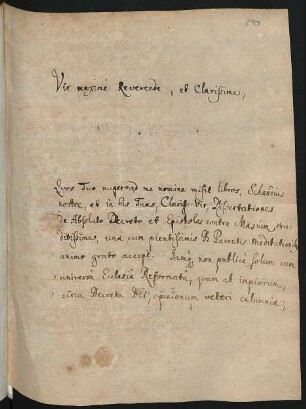 Vir maximè Reverende, et Clarissime,
Quos Tuo nuper ad me nomine misit libros, Schavius
noster, et in his Tuas, Clariss. Vir, Dissertationes
de Absoluto Decreto et Epistolas contra Masium, eru-
ditissimas, una cum pientissimis B. Parentis meditationibus
animo grato accepi. non publicè solum cum
universa Ecclesia Reformata, quam ab impiarum,
circa Decreta Dei, opinionum veteri calumnia,